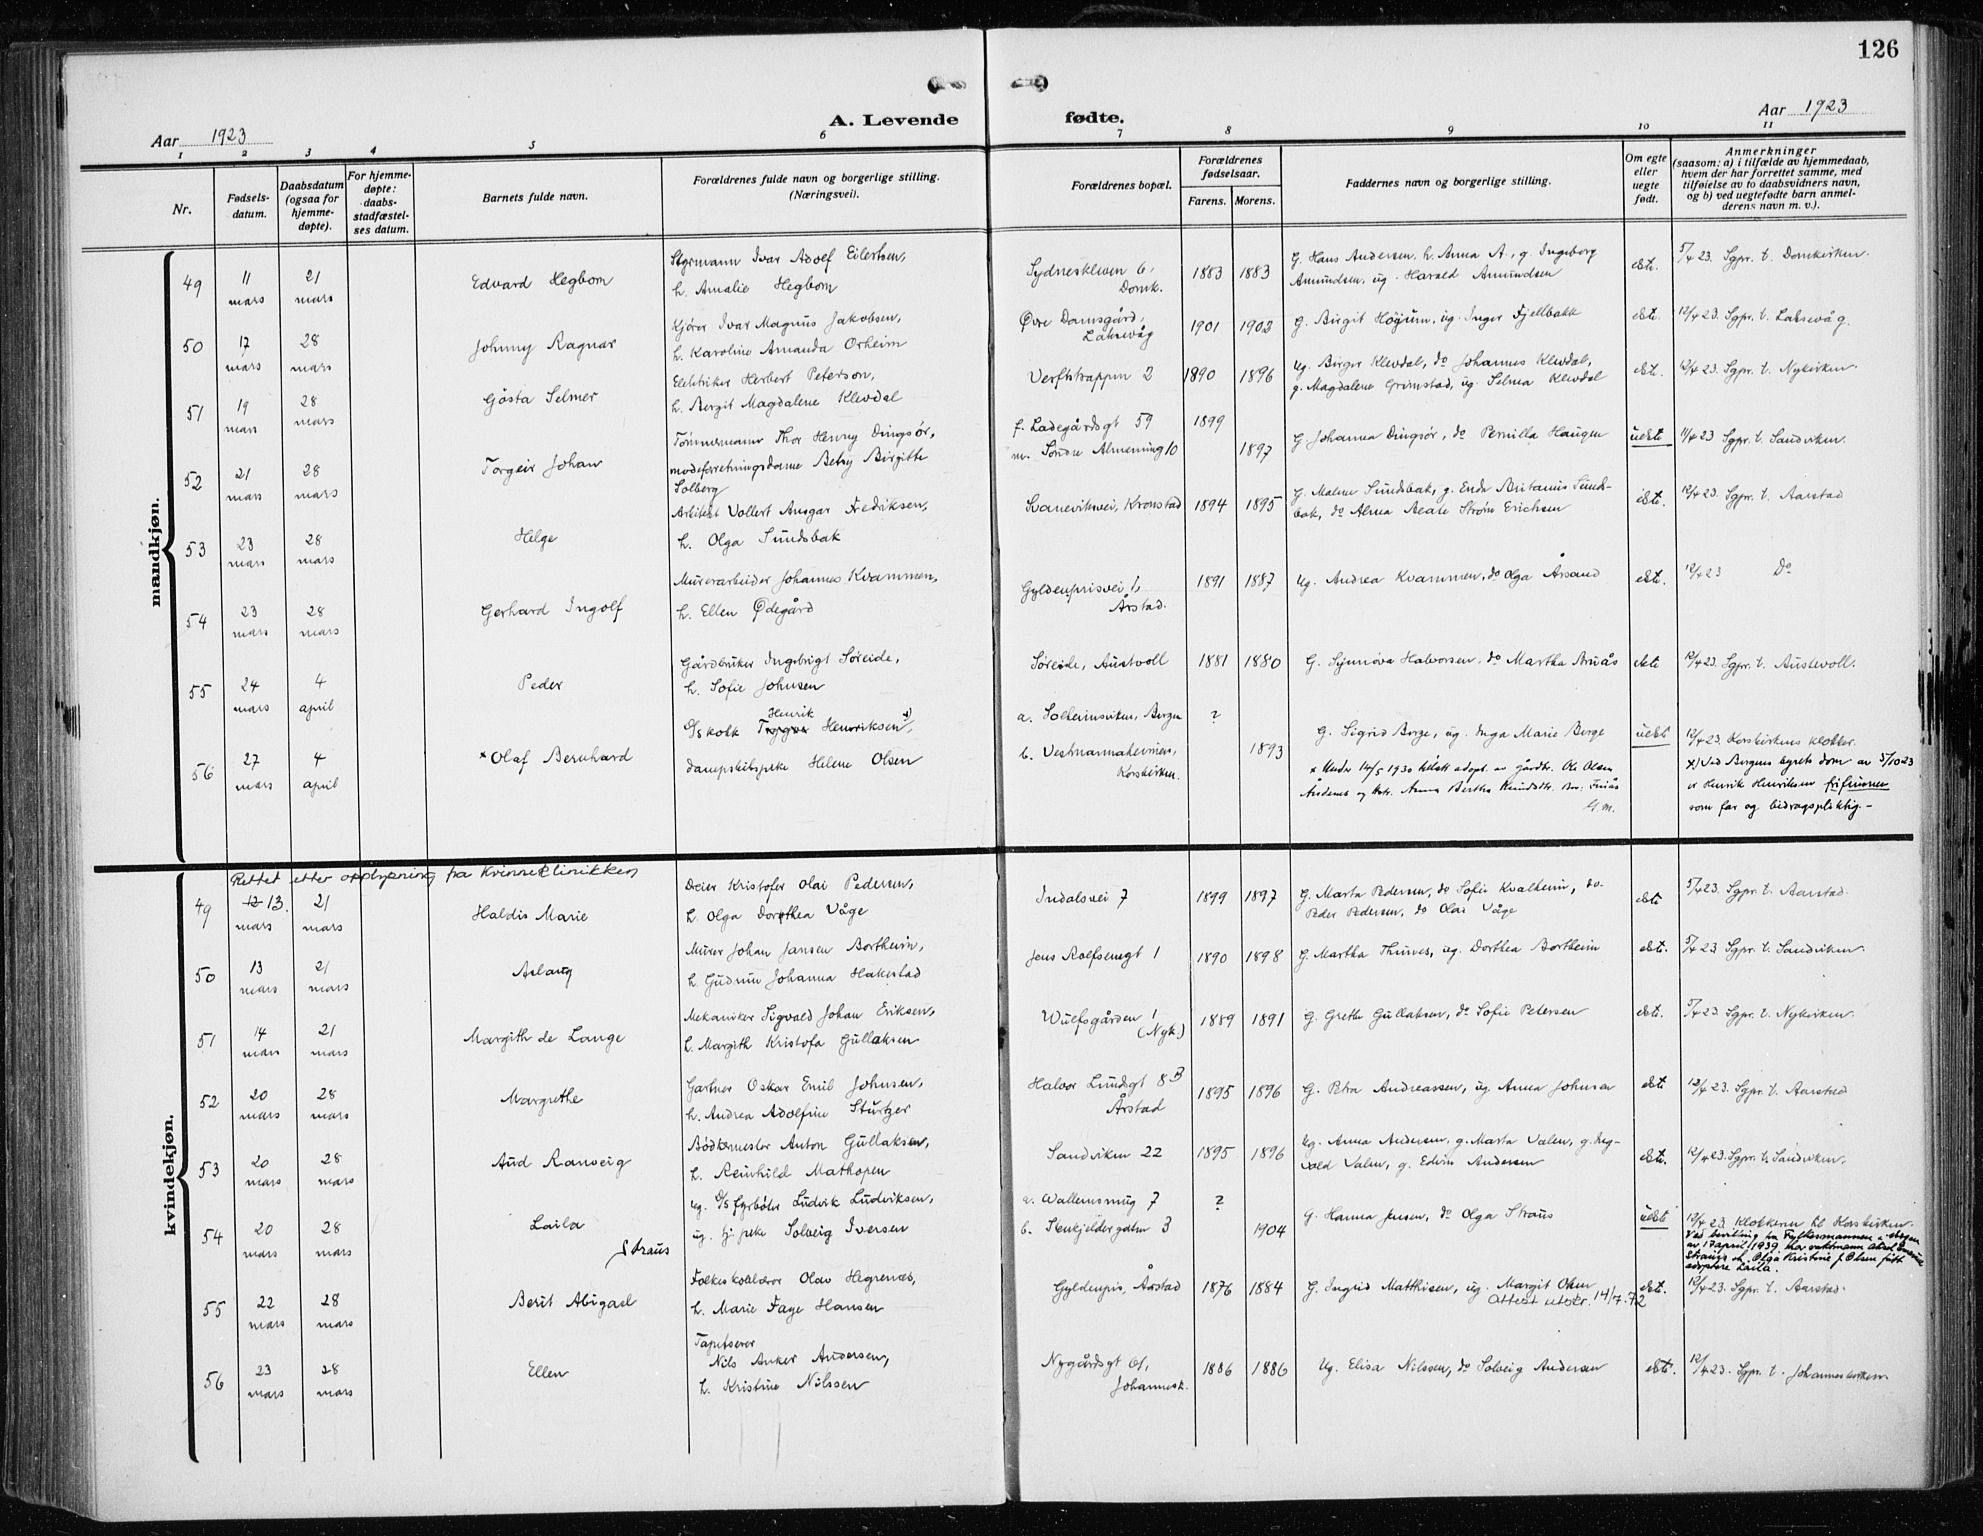 126
A. Levende fødte.
Aar 1923
Aar 1923
1 2 3 4 5 6 7 8 9 10 11
Nr.
Fødsels-
datum.
Daabsdatum
(ogsaa for
hjemme-
døpte).
For hjemme-
døpte:
daabs-
stadfæstel-
ses datum.
Barnets fulde navn.
Forældrenes fulde navn og borgerlige stilling.
(Næringsvei).
Forældrenes bopæl.
Forældrenes
fødselsaar.
Farens. Morens.
Faddernes navn og borgerlige stilling.
Om egte
eller
uegte
født.
Anmerkninger
(saasom: a) i tilfælde av hjemmedaab,
hvem der har forrettet samme, med
tilføielse av to daabsvidners navn,
og b) ved uegtefødte barn anmel-
derens navn m. v.).
mandkjøn.
49 11 mars 21 mars Edvard Hegbom
Styrmann Ivar Adolf Eilertsen,
h. Amalie Hegbom
Sydneskleven 6, Domk. 1883 1883
G. Hans Andersen, h. Anna A., g. Ingeborg
Amundsen, ug. Harald Amundsen
ekte. 5/4 23. Sgpr. t. Domkirken.
50 17 mars 28 mars Johnny Ragnar
Kjører Ivar Magnus Jakobsen,
h. Karoline Amanda Orheim
Øvre Damsgård, Laksevåg 1901 1902
G. Birgit Høgum, ug. Inger Fjellbakk
ekte. 12/4 23. Sgpr. t. Laksevåg.
51 19 mars 28 mars Gösta Selmer
Elektriker Herbert Peterson,
h. Bergit Magdalene Klevdal
Verftstrappen 2 1890 1896
Ug. Birger Klevdal, do Johannes Klevdal,
g. Magdalene Grimstad, ug. Selma Klevdal
ekte. 12/4 23. Sgpr. t. Nykirken.
52 21 mars 28 mars Torgeir Johan
Tømmermann Thor Henry Dingsør,
modeforretningsdame Betsy Birgitte
Solberg
f. Ladegårdsgt 59 1899
m. Søndre Almenning 10 1897
G. Johanna Dingsør, do Pernilla Haugen
uekte 11/4 23 Sgpr. t. Sandviken.
53 23 mars 28 mars Helge
Arkitekt Vollert Ansgar Fredriksen,
h. Olga Sundsbak
Svaneviksvei, Kronstad 1894 1895
G. Malene Sundsbak, g. Enda Britanus Sunds-
bak, do Alma Beate Strøm Erichsen
ekte. 12/4 23. Sgpr. t. Aarstad
54 23 mars 28 mars Gerhard Ingolf
Murerarbeider Johannes Kvammen,
h. Ellen Ødegård
Gyldenprisvei 1, Årstad. 1891 1887
Ug. Andrea Kvammen, do Olga Årsand
ekte. 12/4 23 Do
55 24 mars 4 april Peder
Gårdbruker Ingebrigt Søreide,
h. Sofie Johnsen
Søreide, Austvoll 1881 1880
G. Synnøva Halvorsen, do Martha Bruås
ekte 12/4 23. Sgpr. t. Austevoll.
56 27 mars 4 april × Olaf Bernhard
Henrik
D/s kokk Trygve Henriksen x),
dampskibspike Helene Olsen
a. Solheimsviken, Bergen ?
b. Vestmannaheimen, Korskirken. 1893
G. Sigrid Berge, ug. Inga Marie Berge
uekte 12/4 23. Korskirkens klokker.
× Under 14/5 1930 tilstått adopt. av gårdbr. Ole Olsen
x) Ved Bergens byrets dom av 5/10 23
er Henrik Henriksen frifunnen
som far og bidragspliktig.-
kvindekjøn.
Rettet etter opplysning fra Kvinneklinikken
49 12 13. mars 21 mars Haldis Marie
Deier Kristofer Olai Pedersen,
h. Olga Dorothea Våge
Indalsvei 7 1899 1897
G. Marta Pedersen, do Sofie Kvalheim, do.
Peder Pedersen, do Olai Våge
ekte 5/4 23. Sgpr. t. Aarstad.
50 13 mars 21 mars Aslaug
Murer Johan Jansen Bortheim,
h. Gudrun Johanna Hakestad
Jens Rolfsensgt 1 1890 1898
G. Martha Thunes, ug. Dorthea Bortheim
ekte. 5/4 23 Sgpr. t. Sandviken.
51 14 mars 21 mars Margith de Lange
Mekaniker Sigvald Johan Eriksen,
h. Margith Kristofa Gullaksen
Wulfsgården 1 (Nyk.) 1889 1891
G. Grethe Gullaksen, do Sofie Petersen
ekte. 5/4 23. Sgpr. t. Nykirken.
52 20 mars 28 mars Margrethe
Gartner Oskar Emil Johnsen,
h. Andrea Adolfine Sturtzer
Halvor Lundsgt 8B Årstad 1895 1896
G. Petra Andreassen, ug. Anna Johnsen
ekte 12/4 23. Sgpr. t. Aarstad
53 20 mars 28 mars Aud Ranveig
Bødkermester Anton Gullaksen,
h. Reinhild Mathopen
Sandviken 22 1895 1896
Ug. Anna Andersen, g. Marta Valen, g. Ing-
vald Valen, g. Edvin Andersen
ekte. 12/4 23. Sgpr. t. Sandviken.
54 20 mars 28 mars Laila
Straus
ug. D/s fyrbøter Ludvik Ludviksen,
ug. hj. pike Solveig Iversen
a. Wallemsmug 7 ?
b. Steinkjellergaten 3 1904
G. Hanna Jensen, do Olga Straus
uekte 12/4 23. Klokkeren til Korskirken.
Ved bevilling fra Fylkesmannen i Bergen
av 17 april 1939 har vaktmann Aksel
Straus og h. Olga Kristine f. Olsen fått
adoptere Laila.
55 22 mars 28 mars Berit Abigael
Folkeskolelærer Olav Hegrenæs,
h. Marie Faye Hansen
Gyldenpris, Årstad 1876 1884
G. Ingrid Matthisen, ug. Margit Olsen
Attest utskr. 14/7-72
ekte. 12/4 23. Sgpr. t. Aarstad.
56 23 mars 28 mars Ellen
Tapetserer
Nils Anker Andersen,
h. Kristine Nilssen
Nygårdsgt 61, Johannesk. 1886 1886
Ug. Elisa Nilssen, do Solveig Andersen
ekte. 12/4 23. Sgpr. t. Johanneskirken